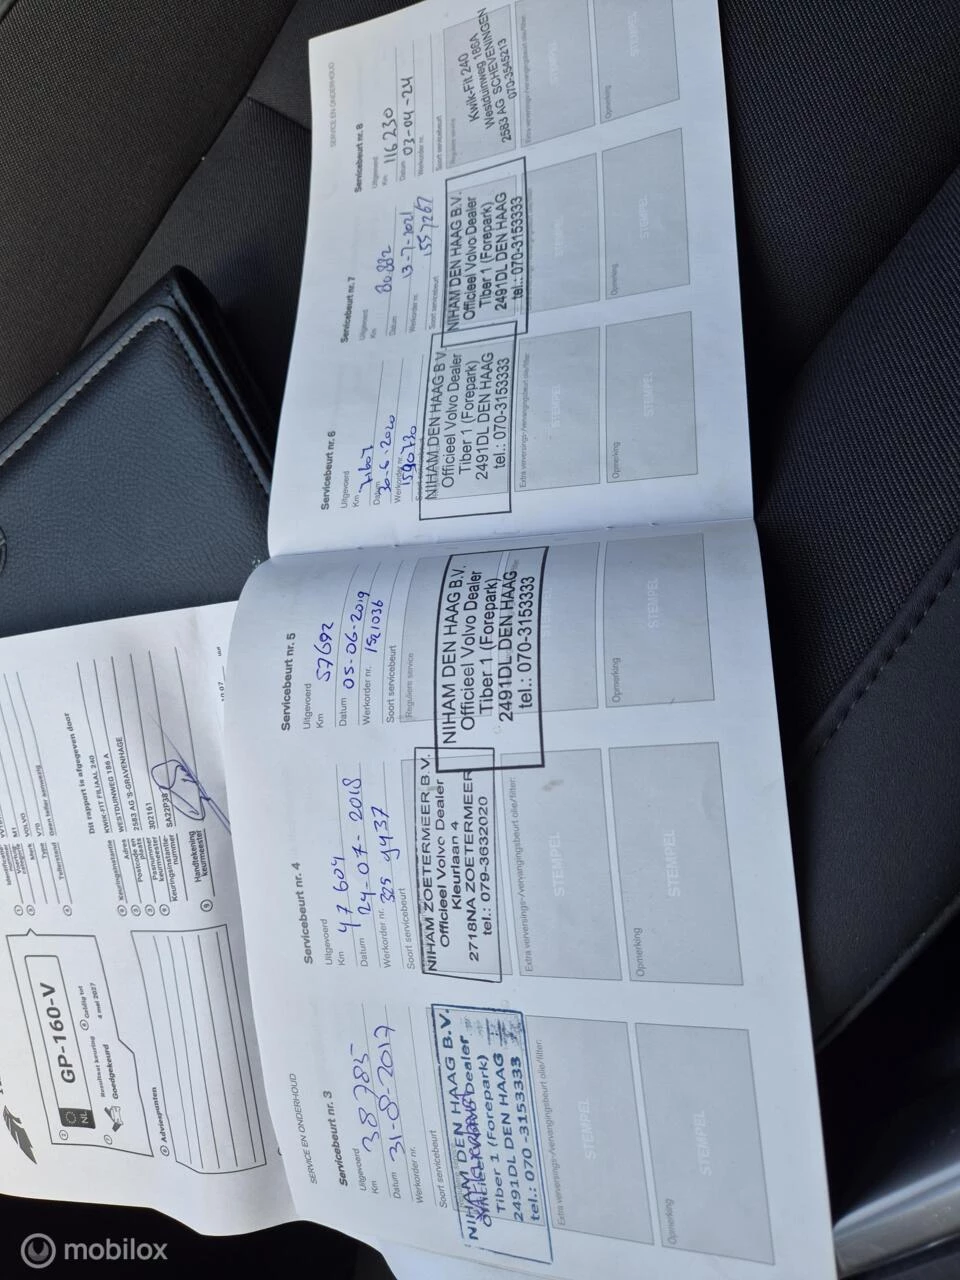 SERVICE EN ONDERHOUD
Servicebeurt nr. 3
Uitgevoerd
Km 38785
Datum 31-8-2017
Werkorder nr.
Soort servicebeurt
NIHAM DEN HAAG B.V.
Officieel Volvo Dealer
Tiber 1 (Forepark)
2491DL DEN HAAG
tel.: 070-3153333
Extra verversings-/vervangingsbeurt olie/filter:
STEMPEL
Opmerking
STEMPEL
Servicebeurt nr. 4
Uitgevoerd
Km 47604
Datum 24-07-2018
Werkorder nr. 325 9437
Soort servicebeurt
NIHAM ZOETERMEER B.V.
Officieel Volvo Dealer
Kleurlaan 4
2718NA ZOETERMEER
tel.: 079-3632020
Extra verversings-/vervangingsbeurt olie/filter:
STEMPEL
Opmerking
STEMPEL
Servicebeurt nr. 5
Uitgevoerd
Km 57692
Datum 05-06-2019
Werkorder nr. 1521036
Soort servicebeurt
Reguliere service
NIHAM DEN HAAG B.V.
Officieel Volvo Dealer
Tiber 1 (Forepark)
2491DL DEN HAAG
tel.: 070-3153333
STEMPEL
Opmerking
STEMPEL
Servicebeurt nr. 6
Uitgevoerd
Km 71607
Datum 30-6-2020
Werkorder nr.
NIHAM DEN HAAG B.V.
Officieel Volvo Dealer
Tiber 1 (Forepark)
2491DL DEN HAAG
tel.: 070-3153333
Extra verversings-/vervangingsbeurt olie/filter
STEMPEL
Opmerking
STEMPEL
Servicebeurt nr. 7
Uitgevoerd
Km 80.882
Datum 13-7-2021
Werkorder nr. 1557267
Soort servicebeurt
NIHAM DEN HAAG B.V.
Officieel Volvo Dealer
Tiber 1 (Forepark)
2491DL DEN HAAG
tel.: 070-3153333
STEMPEL
Opmerking
STEMPEL
SERVICE EN ONDERHOUD
Servicebeurt nr. 8
Uitgevoerd
Km 116230
Datum 03-04-24
Werkorder nr.
Soort servicebeurt
Reguliere service
Kwik-Fit 240
Westduinweg 186A
2583 AG SCHEVENINGEN
070-3545213
Extra verversings-/vervangingsbeurt olie/filter
STEMPEL
Opmerking
STEMPEL
NL
GP-160-V
Resultaat keuring
Goedgekeurd
Geldig tot
4 mei 2027
Adviespunten
M1
Merk VOLVO
Type V70
Tellerstand Geen teller aanwezig
Dit rapport is afgegeven door
Keuringsinstantie KWIK-FIT FILIAAL 240
Adres WESTDUINWEG 186 A
Postcode en plaats 2583 AG 'S-GRAVENHAGE
Pasnummer keurmeester 302161
Keuringsinstantie nummer SA22P38
Handtekening keurmeester
mobilox